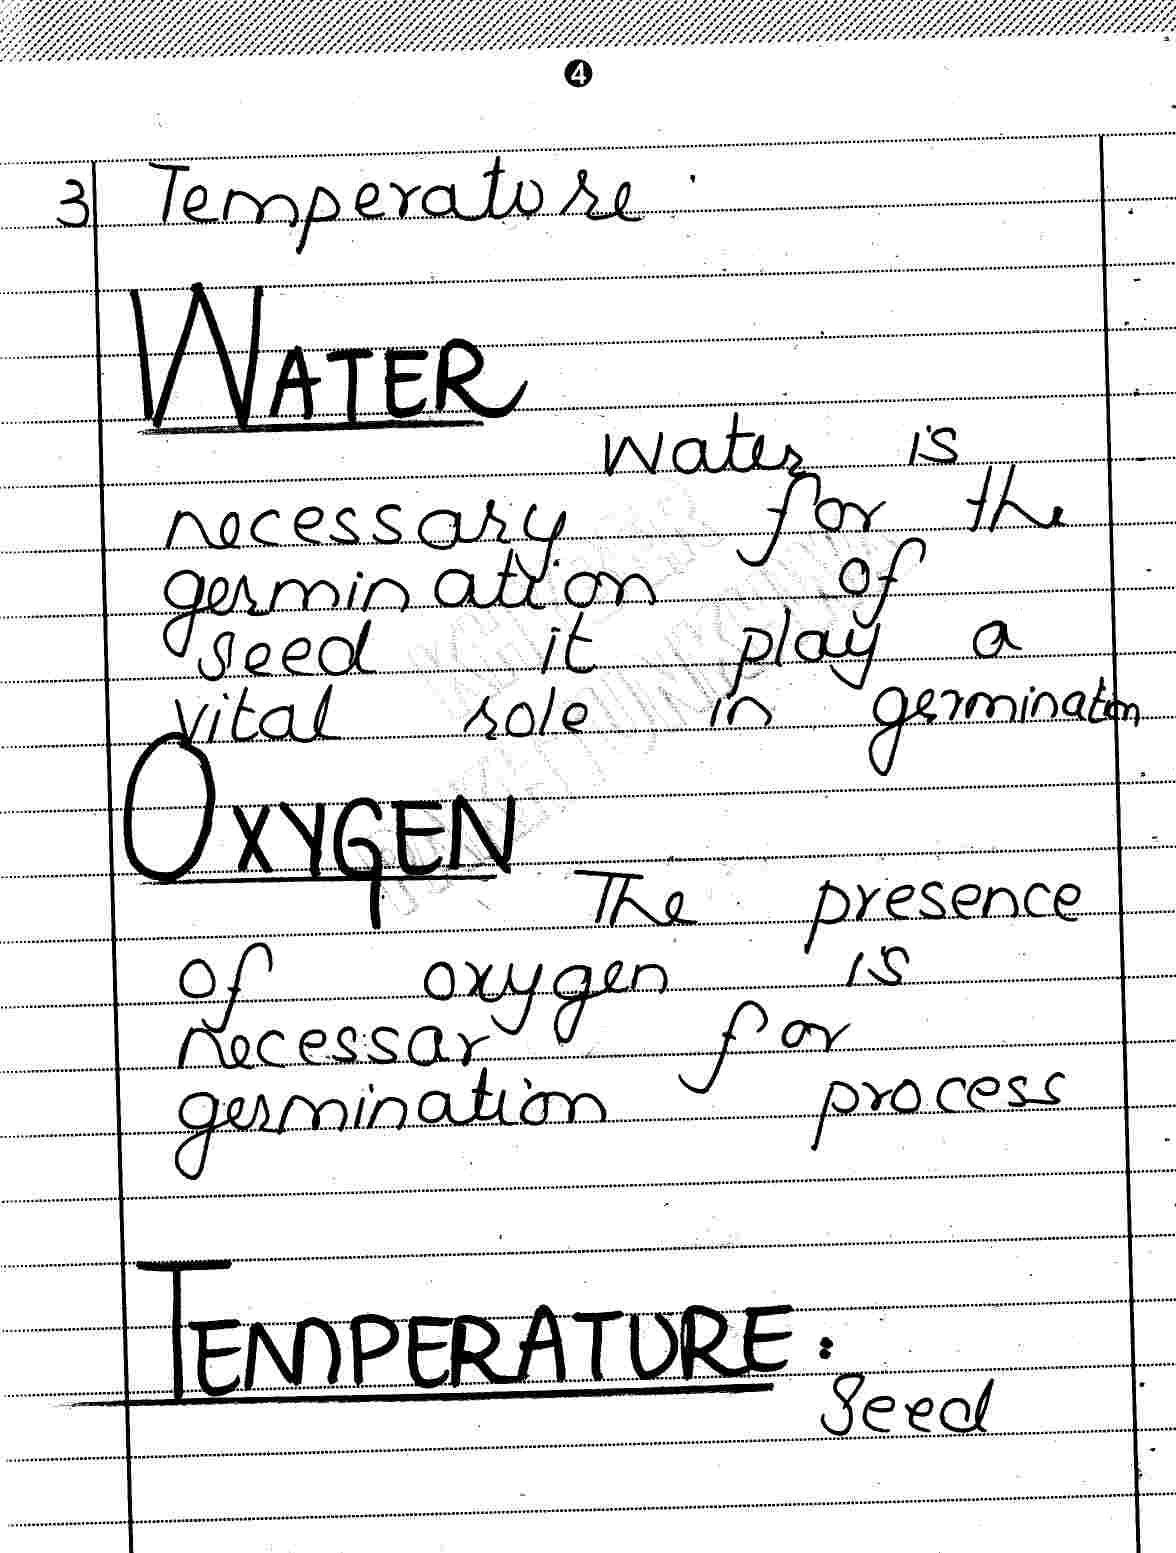 4
3 Temperature.
WATER
Water is
necessary for the
germination of
seed it play a
vital role in germination
OXYGEN
The presence
of oxygen is
necessar for
germination process
TEMPERATURE :
Seed